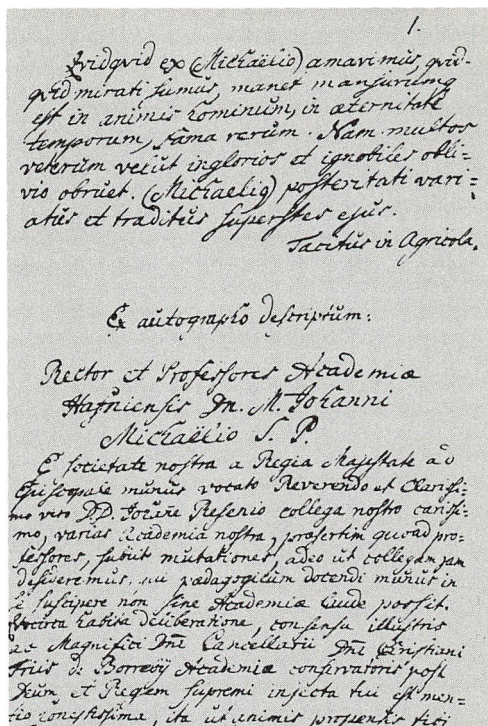 1.
Qvidqvid ex (Michaëlio) amavimus, qvid-
qvid mirati sumus, manet mansurumq
est in animis hominum, in æternitate
temporum, fama rerum. Nam multos
veterum velut inglorios et ignobiles obli=
vio obruet. (Michaelig) posteritati narr=
atus et traditus superstes ejus.
Tacitus in Agricola.
Ex autographo descriptum:
Rector et Professores Academiæ
Hafniensis Dn. M. Johanni
Michaëlio S. P.
E societate nostra a Regia Majestate ad
Episcopale munus vocato Reverendo et Clarissi=
mo viro DD. Johañe Resenio collega nostro carissi=
mo, varias Academia nostra, præsertim qvoad pro=
fessores, subiit mutationes, adeo ut collegam jam
desideremus, qui pædagogicum docendi munus in
se suscipere non sine Academiæ laude possit.
habita deliberatione, consensu illustris
ac Magnifici Dñi Cancellarii Dñi Christiani
Friis de Borreby Academiæ conservatoris post
Deum et Regem supremi injecta tui est men=
tio honestissima, ita ut animis propensis